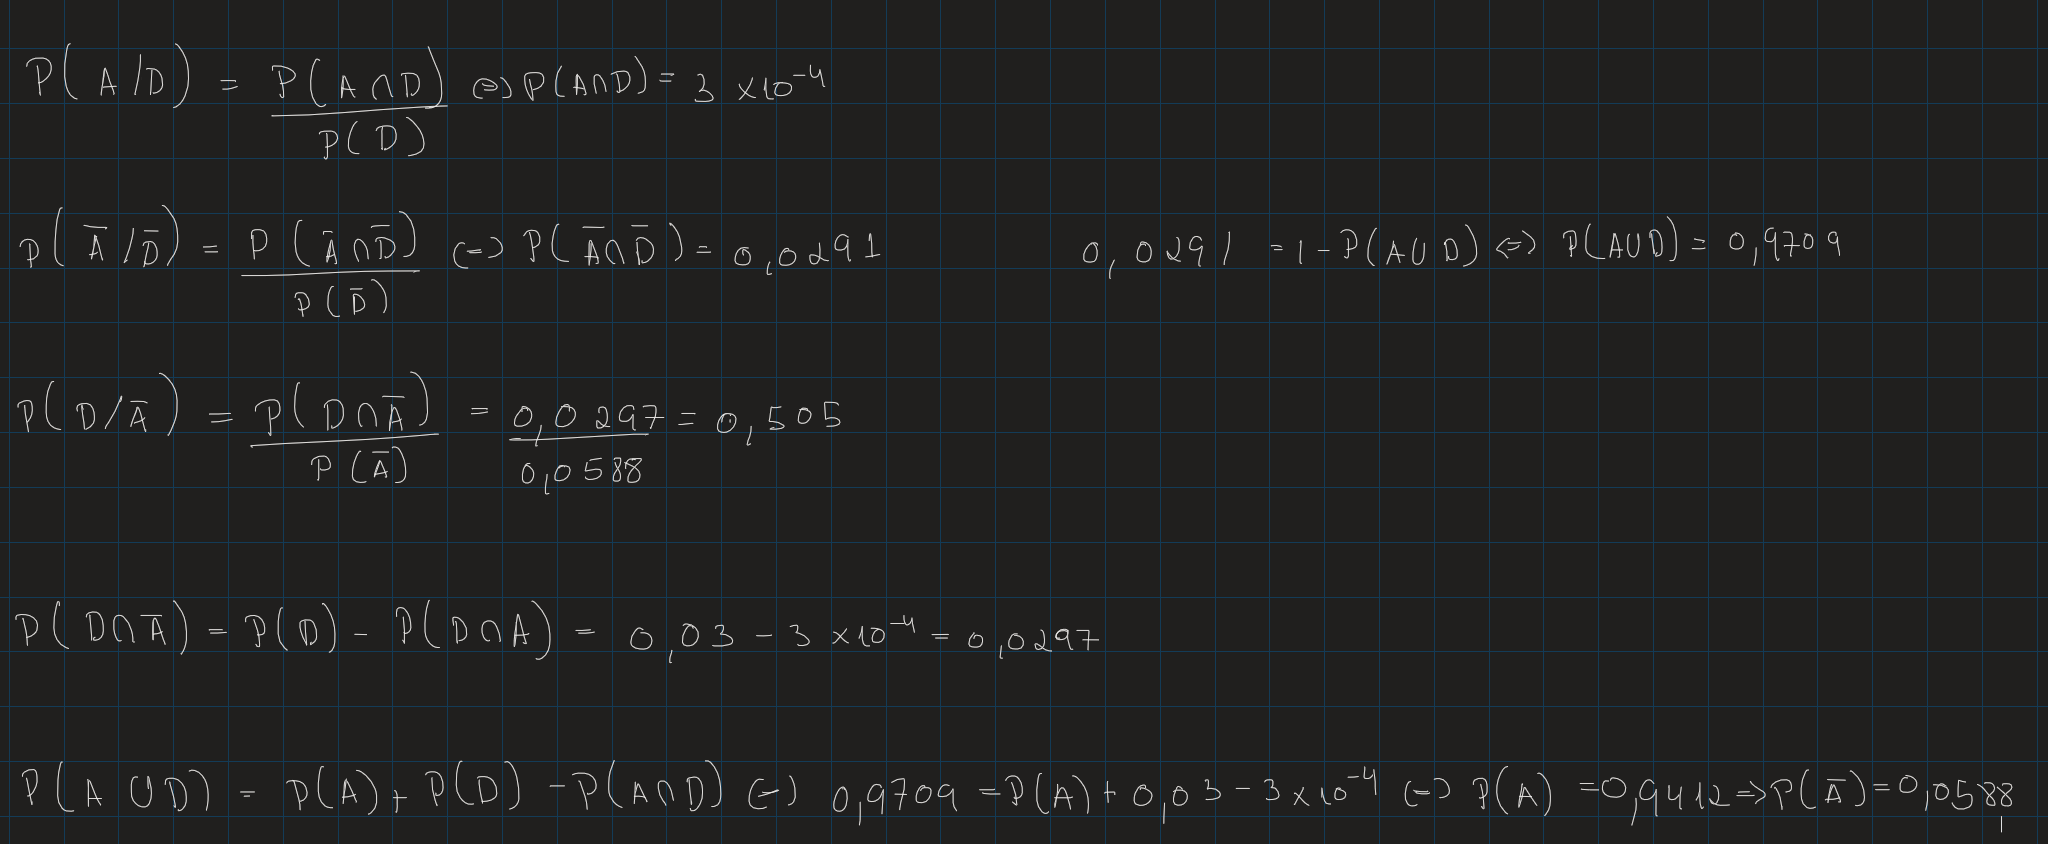 P(A/D) = P(A∩D)/P(D) ⇔ P(A∩D) = 3 ×10⁻⁴
P(A̅/D̅) = P(A̅∩D̅)/P(D̅) ⇔ P(A̅∩D̅) = 0,0291 0,0291 = 1 - P(A∪D) ⇔ P(A∪D) = 0,9709
P(D/A̅) = P(D∩A̅)/P(A̅) = 0,0297/0,0588 = 0,505
P(D∩A̅) = P(D) - P(D∩A) = 0,03 - 3 ×10⁻⁴ = 0,0297
P(A∪D) = P(A) + P(D) - P(A∩D) ⇔ 0,9709 = P(A) + 0,03 - 3×10⁻⁴ ⇔ P(A) = 0,9412 ⇒ P(A̅) = 0,0588